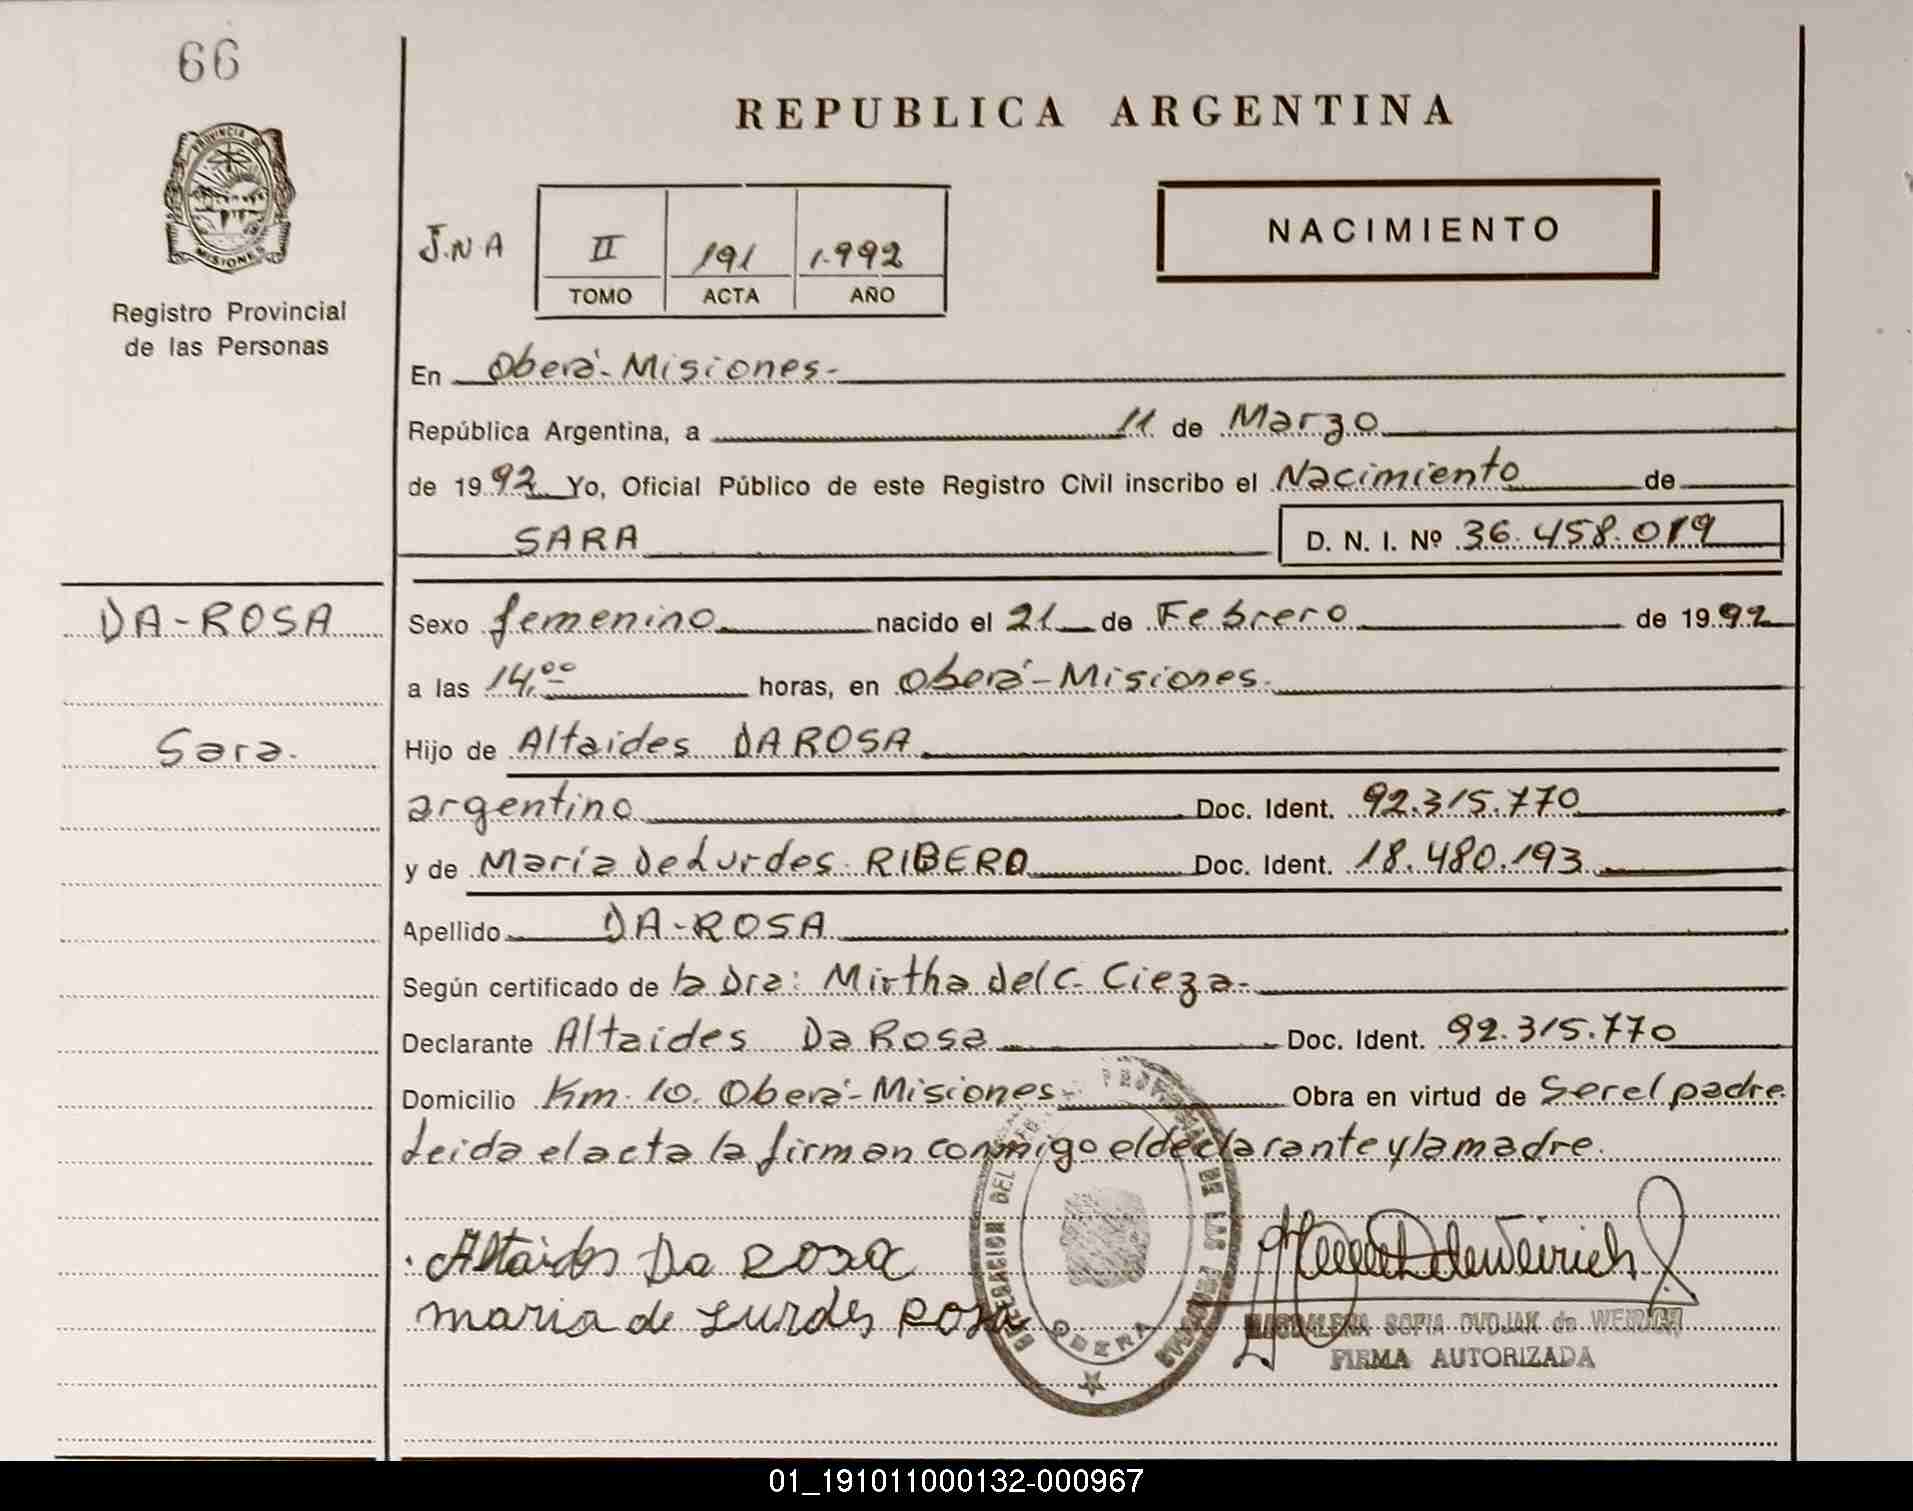 66
REPUBLICA ARGENTINA
PROVINCIA DE
MISIONES
Registro Provincial
de las Personas
J.N.A
II 191 1.992
TOMO ACTA AÑO
NACIMIENTO
En Oberá-Misiones-
República Argentina, a 11 de Marzo
de 1992 Yo, Oficial Público de este Registro Civil inscribo el Nacimiento de
SARA D. N. I. Nº 36.458.019
DA-ROSA
Sara.
Sexo femenino nacido el 21 de Febrero de 1992
a las 14,00 horas, en Oberá-Misiones.
Hijo de Altaides DA ROSA
argentino Doc. Ident. 92.315.770
y de María De Lurdes RIBERO Doc. Ident. 18.480.193
Apellido DA-ROSA
Según certificado de la Dra: Mirtha del C. Cieza-
Declarante Altaides Da Rosa Doc. Ident. 92.315.770
Domicilio Km. 10. Oberá-Misiones Obra en virtud de Ser el padre
Leida el acta la firman conmigo el declarante y la madre.
Altaides Da Rosa
maria de Lurdes Rosa
DELEGACION DEL PROVINCIAL DE LAS PERSONAS
OBERA
MAGDALENA SOFIA DVOJAK de WEIRICH
FIRMA AUTORIZADA
01_191011000132-000967